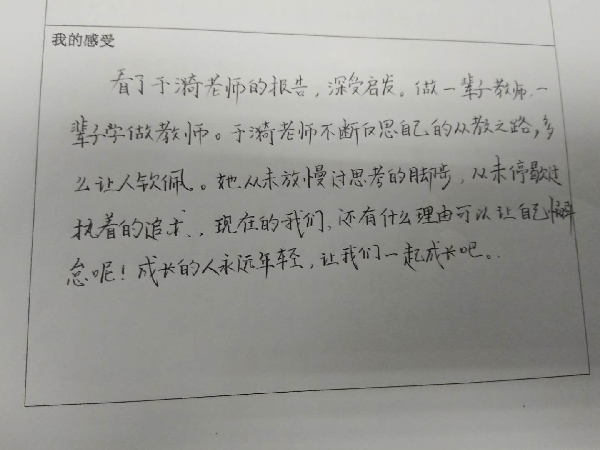 我的感受
看了于漪老师的报告，深受启发。做一辈子教师，一
辈子学做教师。于漪老师不断反思自己的从教之路，多
么让人钦佩。她从未放慢过思考的脚步，从未停歇过
执着的追求，现在的我们，还有什么理由可以让自己懈
怠呢！成长的人永远年轻，让我们一起成长吧。